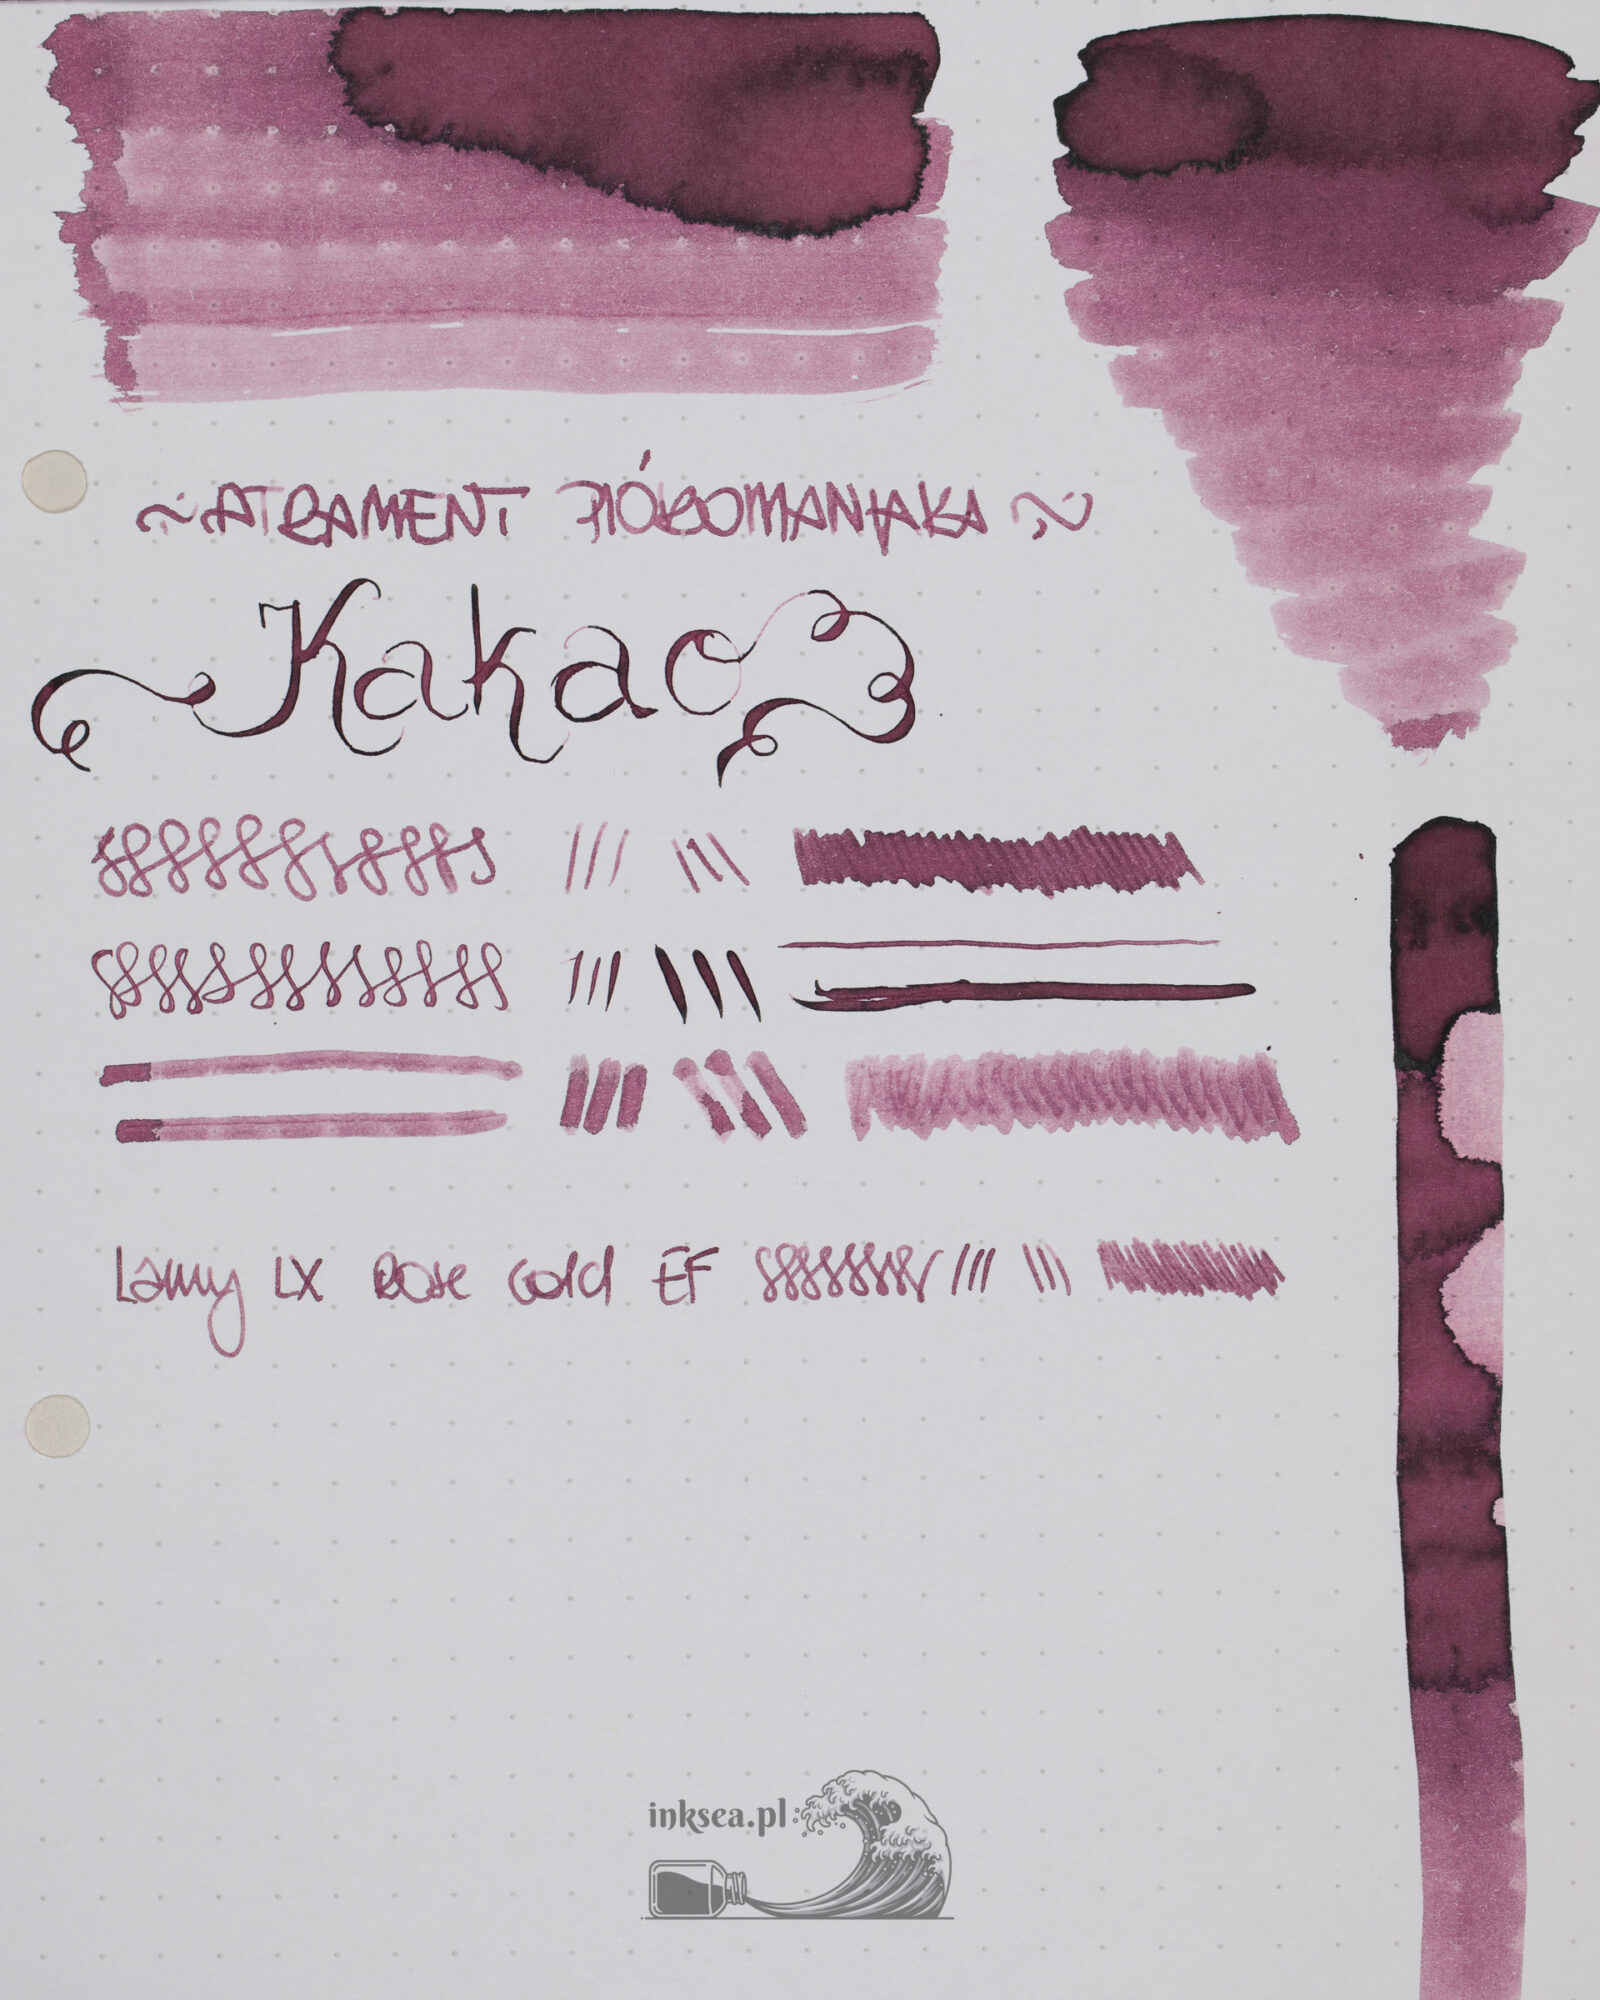 ~ATRAMENT PIÓROMANIAKA~
Kakao
Lamy LX Rose Gold EF
inksea.pl